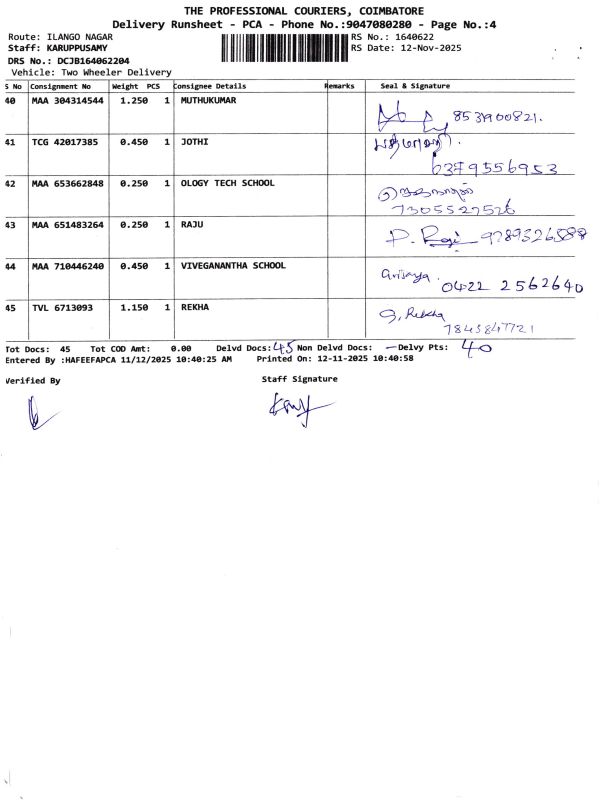 THE PROFESSIONAL COURIERS, COIMBATORE
Delivery Runsheet - PCA - Phone No.:9047080280 - Page No.:4
Route: ILANGO NAGAR RS No.: 1640622
Staff: KARUPPUSAMY RS Date: 12-Nov-2025
DRS No.: DCJB164062204
Vehicle: Two Wheeler Delivery
S No Consignment No Weight PCS Consignee Details Remarks Seal & Signature
40 MAA 304314544 1.250 1 MUTHUKUMAR
41 TCG 42017385 0.450 1 JOTHI
6379556953
42 MAA 653662848 0.250 1 OLOGY TECH SCHOOL
7305527526
43 MAA 651483264 0.250 1 RAJU P. Raji
44 MAA 710446240 0.450 1 VIVEGANANTHA SCHOOL
0422 2562640
45 TVL 6713093 1.150 1 REKHA G. Rekha
7845847721
Tot Docs: 45 Tot COD Amt: 0.00 Delvd Docs: 45 Non Delvd Docs: — Delvy Pts: 40
Entered By :HAFEEFAPCA 11/12/2025 10:40:25 AM Printed On: 12-11-2025 10:40:58
Verified By Staff Signature